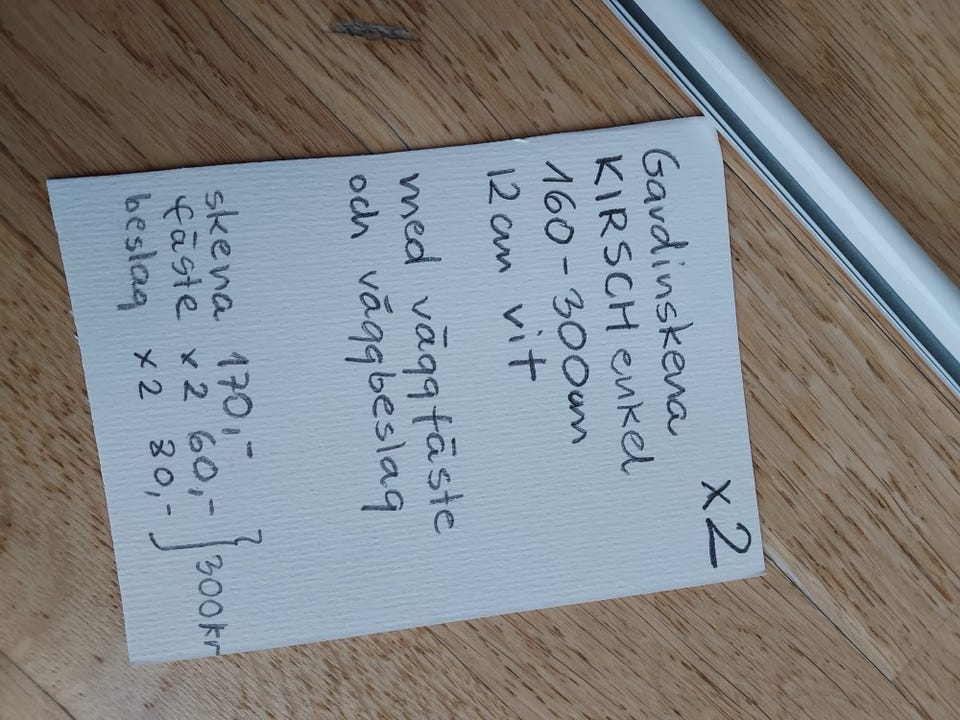 x2
Gardinskena
KIRSCH enkel
160-300cm
12 cm vit
med väggfäste
och väggbeslag
skena 170,-
fäste x2 60,- } 300kr
beslag x2 80,-